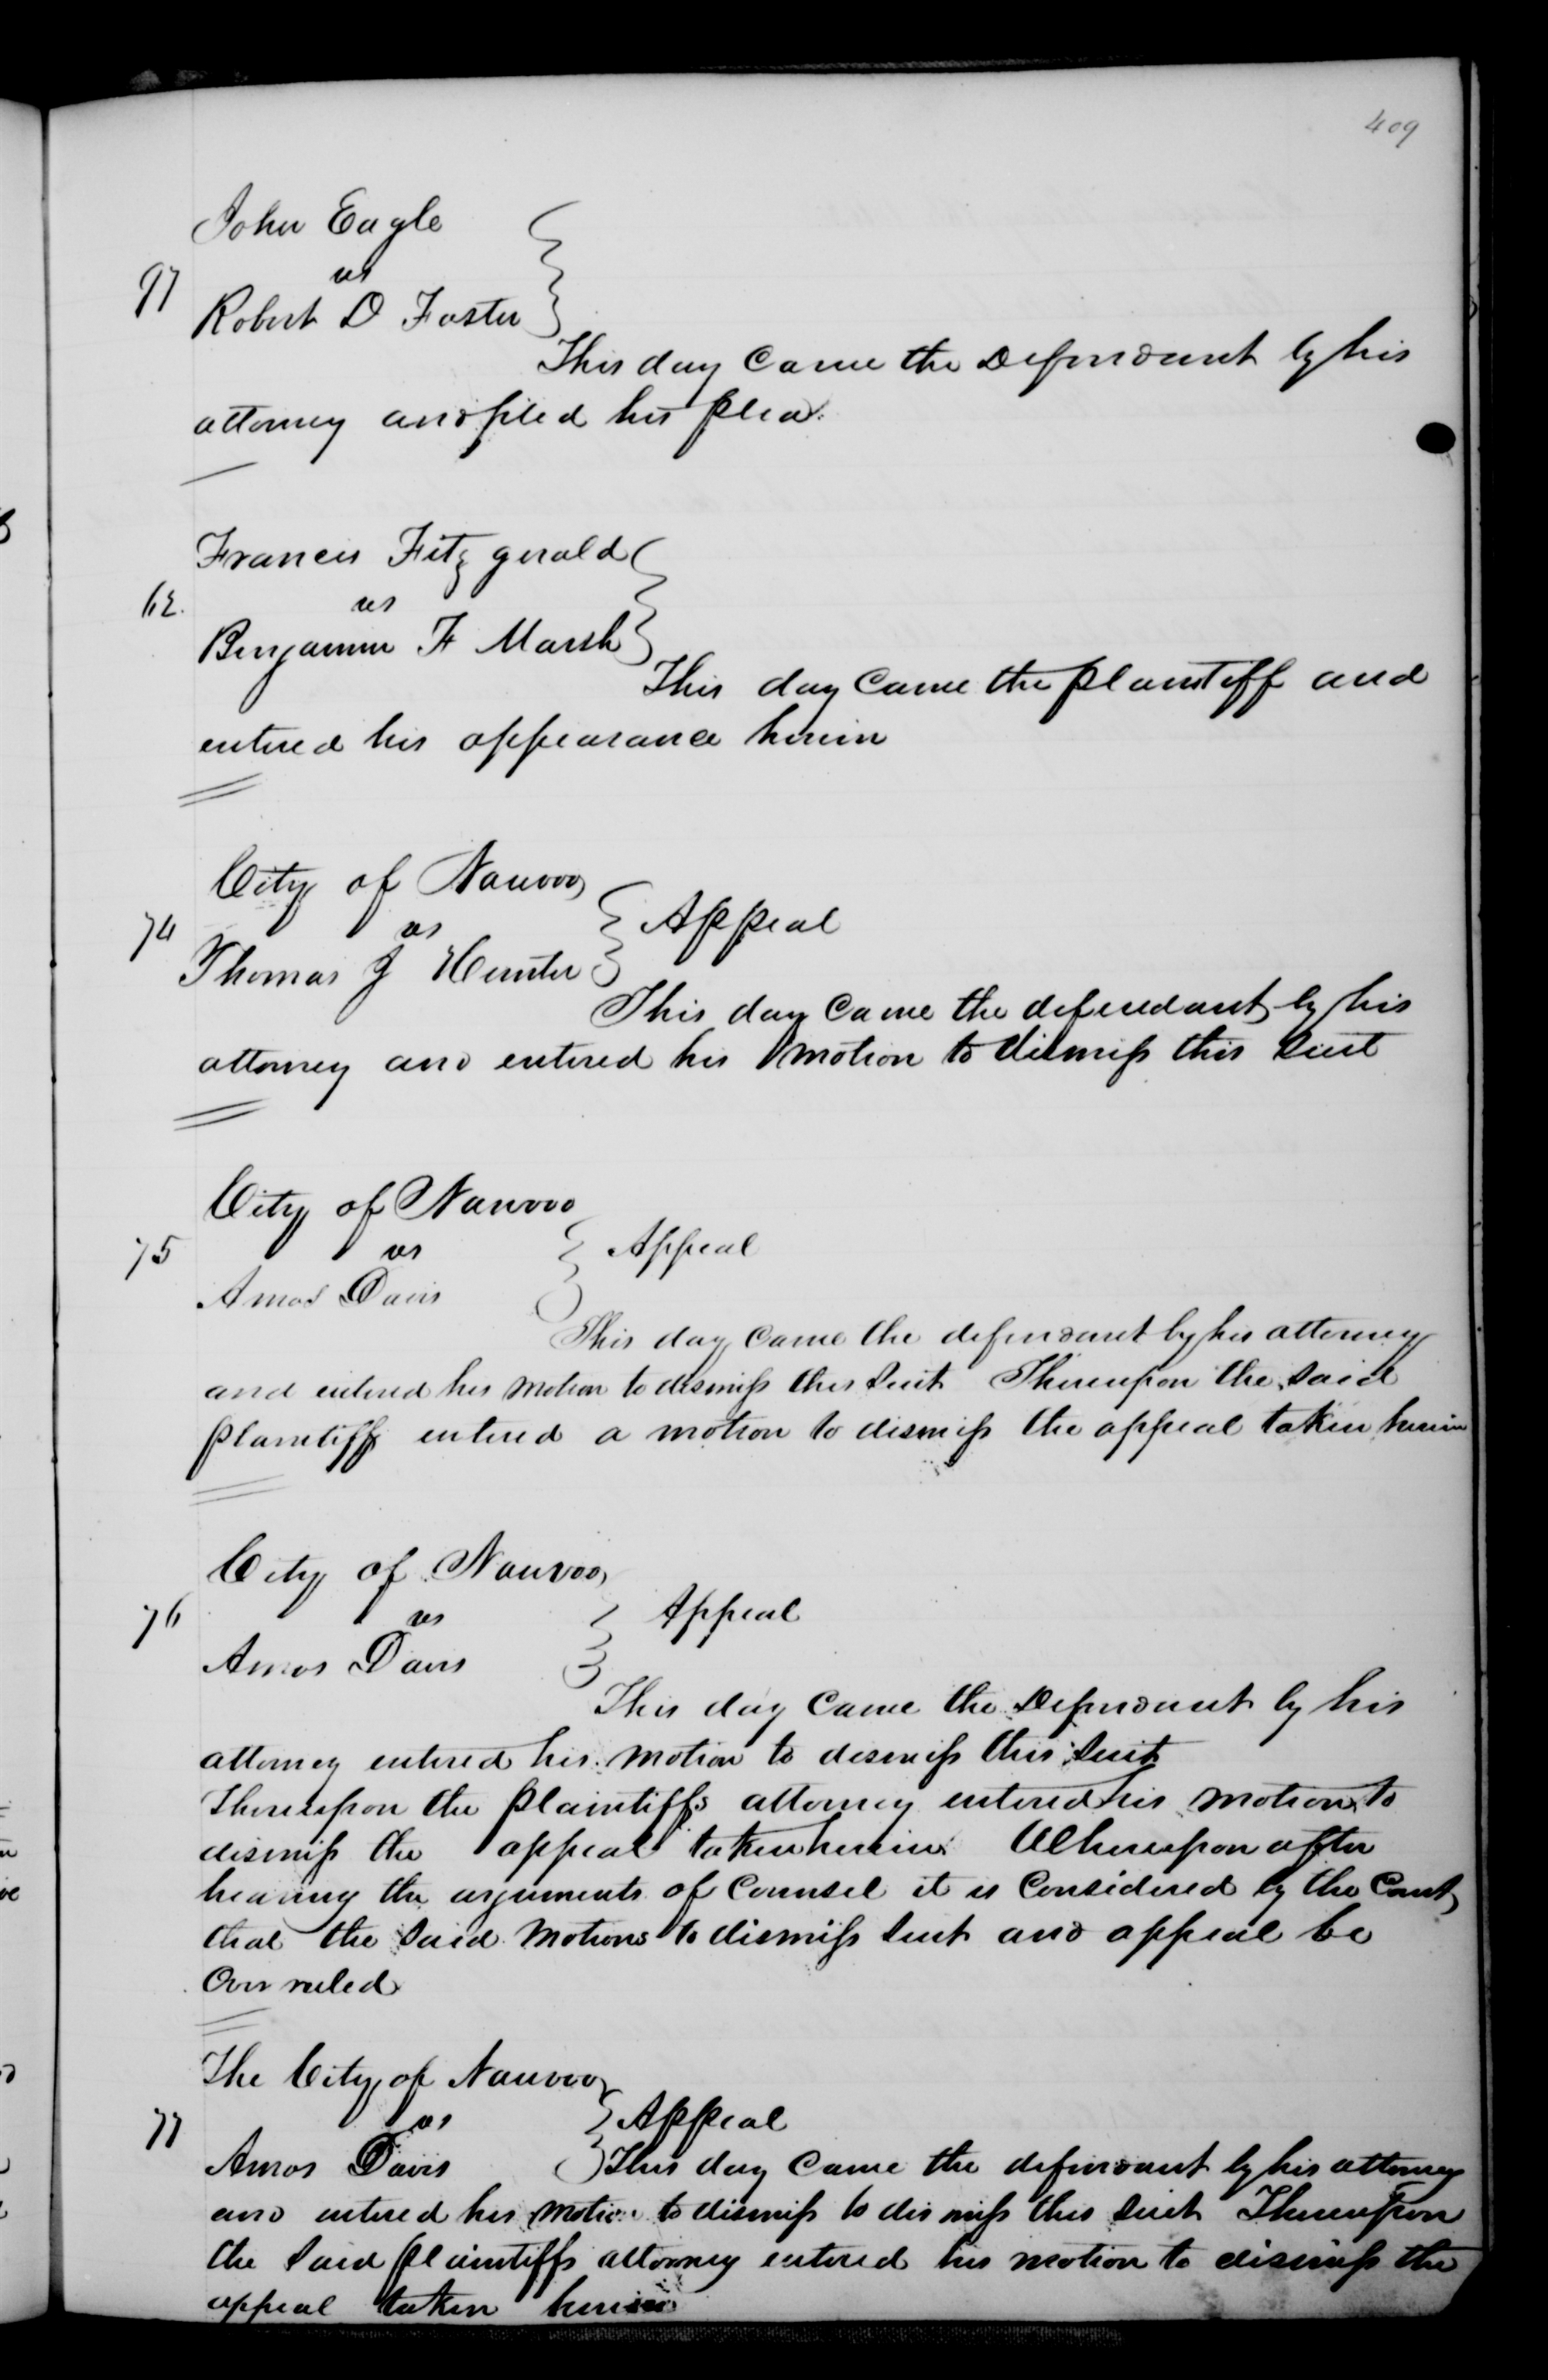 409
John Eagle
vs
97
Robert D Foster
This day Came the Defendant by his
attorney and filed his plea.
Francis Fitz gerald
62.
vs
Benjamin F Marsh
This day Came the plaintiff and
entered his appearance herein
City of Nauvoo
74 vs Appeal
Thomas J Hunter
This day Came the defendant by his
attorney and entered his motion to dismiss this Suit
City of Nauvoo
75 vs Appeal
Amos Davis
This day Came the defendant by his attorney
and entered his motion to dismiss this Suit Thereupon the Said
plaintiff entered a motion to dismiss the appeal taken herein
City of Nauvoo
76 vs Appeal
Amos Davis
This day Came the Defendant by his
attorney entered his motion to dismiss this Suit
Thereupon the plaintiffs attorney entered his motion to
dismiss the appeal taken herein. Whereupon after
hearing the arguments of Counsel it is Considered by the Court
that the Said Motions to dismiss Suit and appeal be
Over ruled
The City of Nauvoo
77 vs Appeal
Amos Davis This day Came the defendant by his attorney
and entered his motion to dismiss to dis miss this Suit Thereupon
the Said plaintiffs attorney entered his motion to dismiss the
appeal taken herein